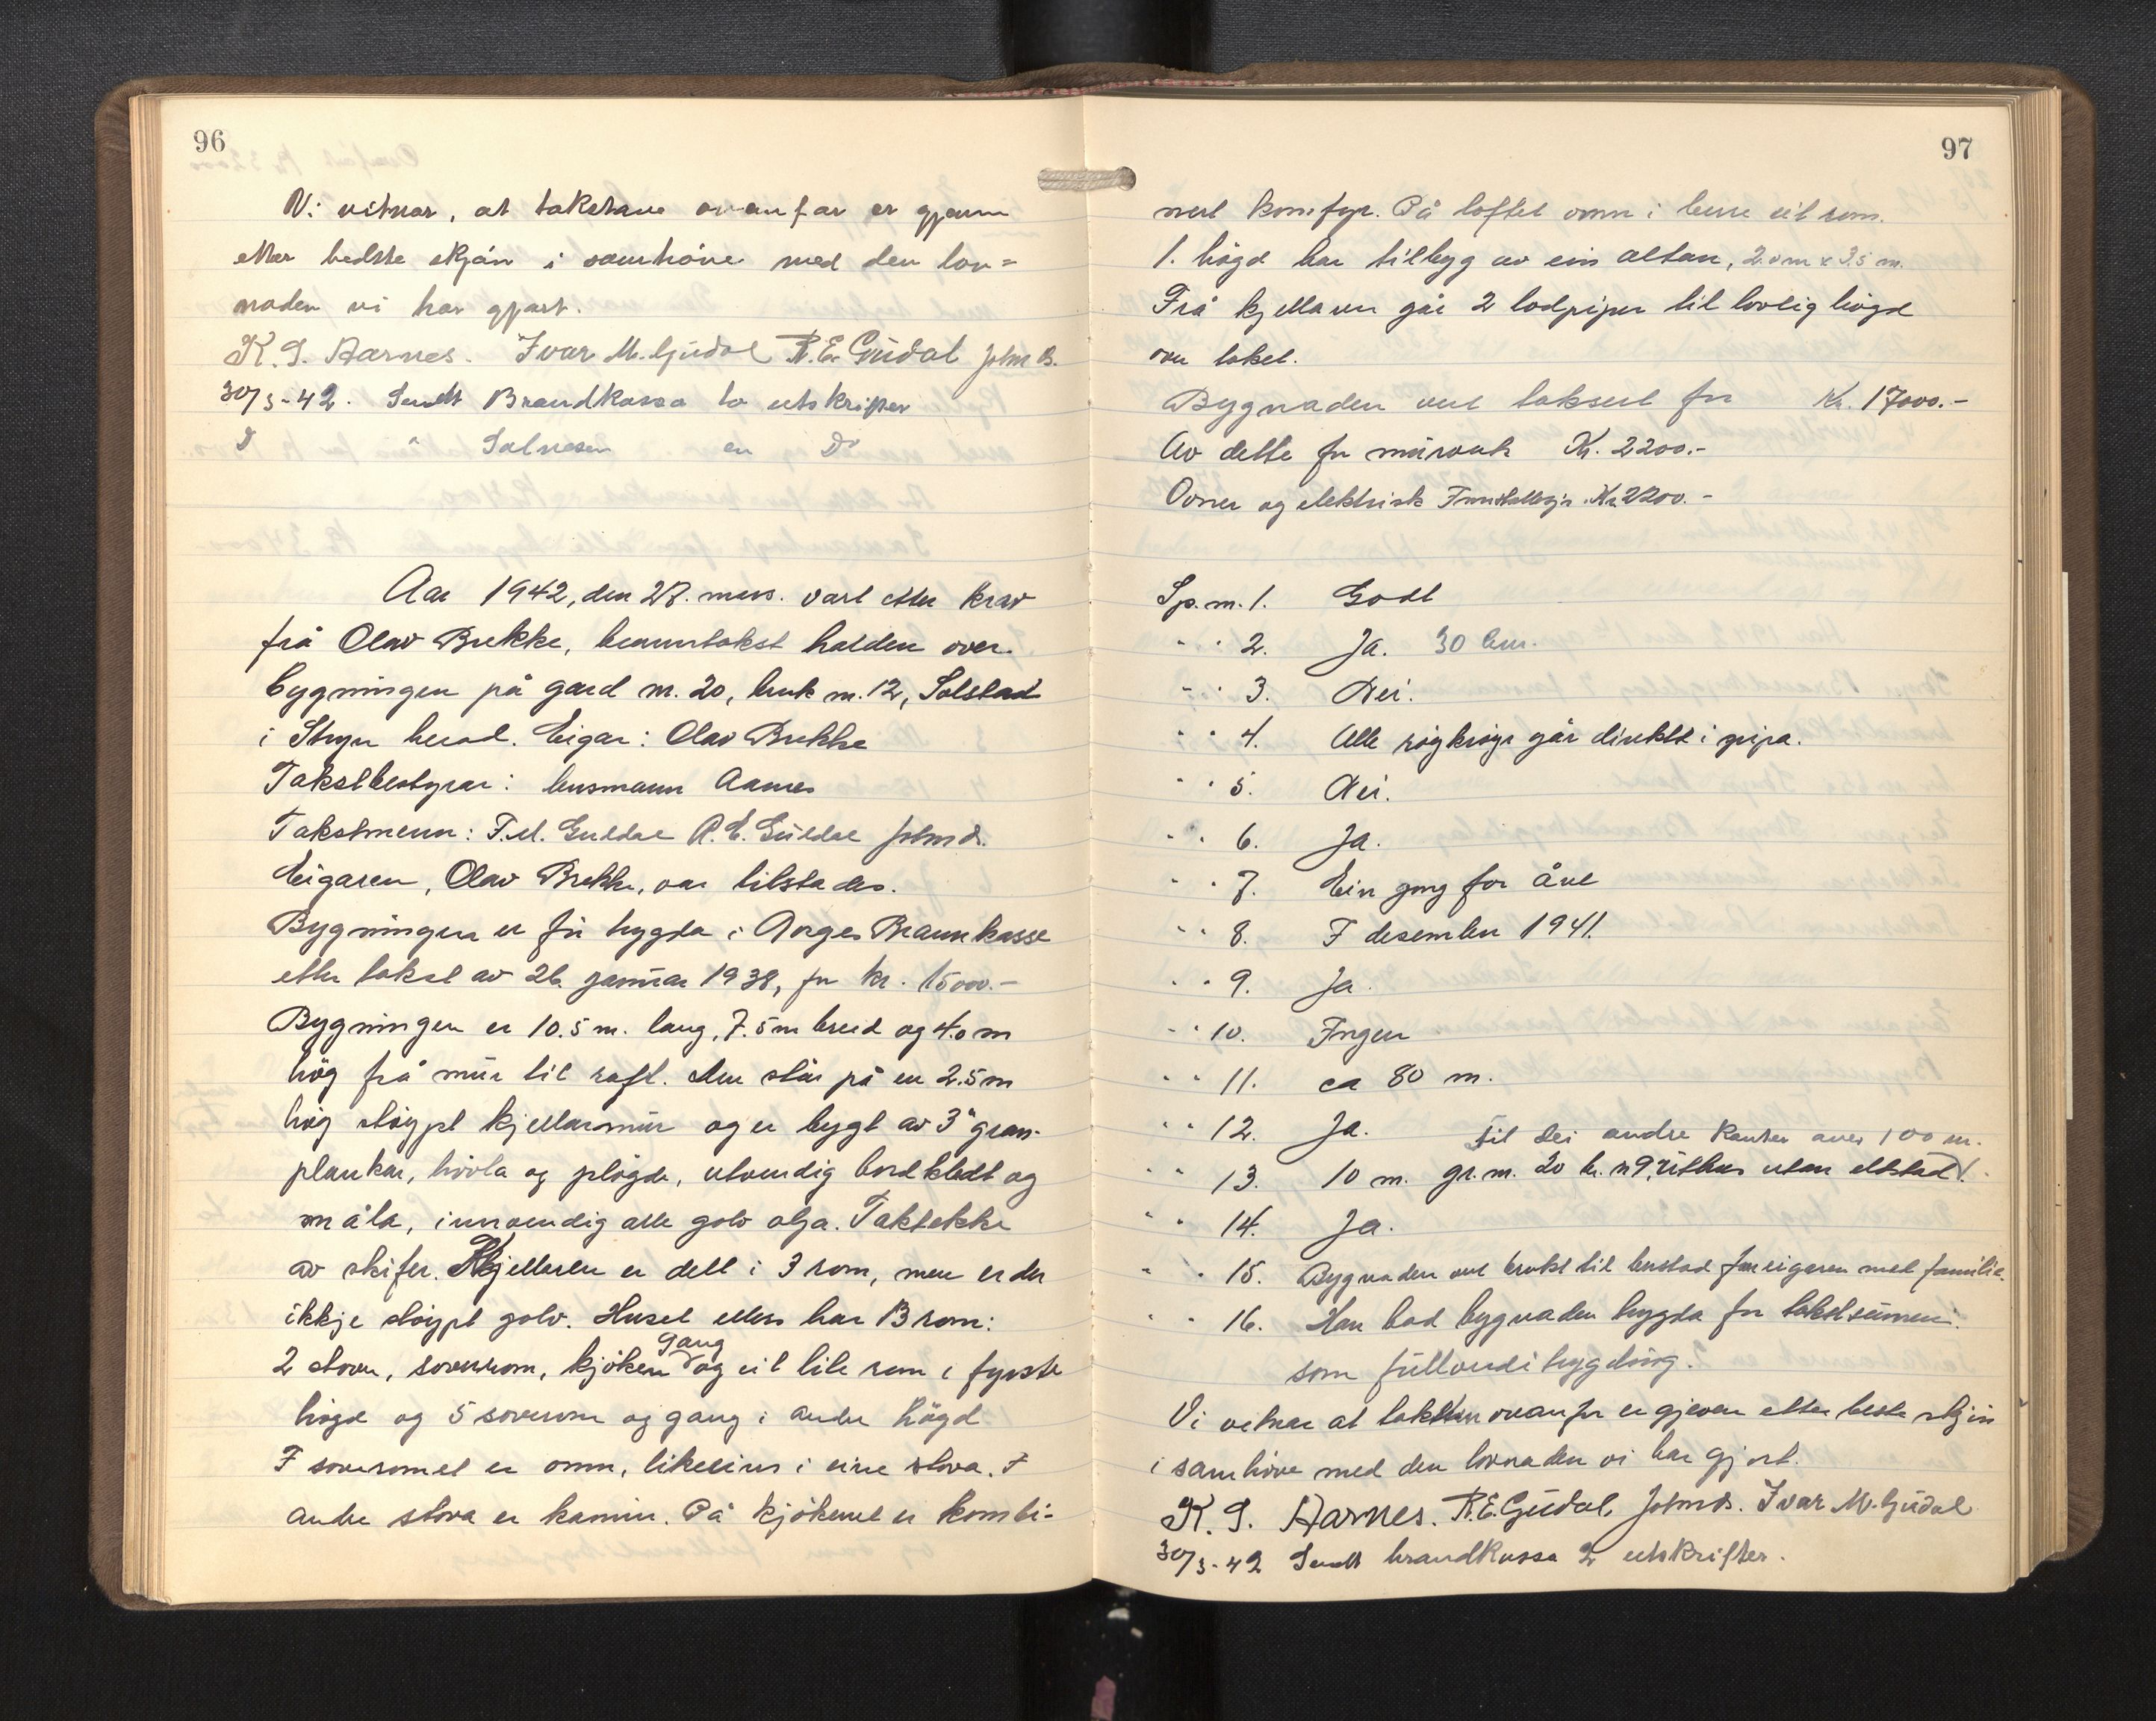 96
Vi vitnar, at takstane ovanfor er gjevne
etter bedste skjön i samhöve med den lov=
naden vi har gjort.
K. S. Aarnes. Ivar M. Gudal R. E. Gudal Johns.
30/3-42. Sendt Brandkassa to utskrifter
D " Solnesen en Do
Aar 1942, den 27. mars. vart etter krav
frå Olav Brekke, branntakst halden over
bygningen på gard nr. 20, bruk nr. 12, Solstad
i Stryn herad. Eigar: Olav Brekke
Takstbestyrar: lensmann Aarnes
Takstmenn: I. M. Guddal R. E. Guddal Johns.
Eigaren, Olav Brekke, var tilstades.
Bygningen er för trygda i Norges Brannkasse
etter takst av 26. januar 1938, for kr. 15000.-
Bygningen er 10.5 m. lang, 7.5 m breid og 4.0 m
hög frå mur til raft. Den står på en 2.5 m
hög stöypt kjellarmur og er bygt av 3" gran-
plankar, hövla og plögde, utvendig bordkledt og
måla, innvendig alle golv olja. Taktekke
av skifer. Kjelleren er delt i 3 rom, men er der
ikkje stöypt golv. Huset elles har 13 rom:
2 stover, soverom, kjöken gang og eit lite rom i fyrste
högd og 5 soverom og gang i andre högd.
I soveromet er omn, likeeins i eine stova. I
andre stova er kamin. På kjökenet er kombi-
97
nert komfyr. På loftet omn i berre eit rom.
1. högd har tilbyg av ein altan, 2.0 m x 3.5 m.
Frå kjellaren går 2 lodpiper til lovlig högd
over taket.
Bygnaden vert taksert for Kr. 17000.-
Av dette for murverk Kr. 2200.-
Ovner og elektrisk Installasjo. Kr. 2200.-
Sp.m. 1. Godt
" " 2. Ja. 30 cm.
" " 3. Nei.
" " 4. Alle röykröyr går direkte i pipa.
" " 5. Nei.
" " 6. Ja.
" " 7. Ein gong for året
" " 8. I desember 1941.
" " 9. Ja.
" " 10. Ingen
" " 11. ca 80 m.
" " 12. Ja. Til dei andre kanter over 100 m.
" " 13. 10 m. gr.nr. 20 br. n 9, Uthus utan eldstad.
" " 14. Ja.
" " 15. Bygnaden vert brukt til bustad for eigaren med familie.
" " 16. Han bad bygnaden trygda for takstsumen
som fullverdi trygding.
Vi vitnar at taksten ovanfor er gjeven etter beste skjön
i samhöve med den lovnaden vi har gjort.
K. S. Aarnes. R. E. Gudal, Johns. Ivar M. Gudal
30/3-42 Sendt brandkassa 2 utskrifter.